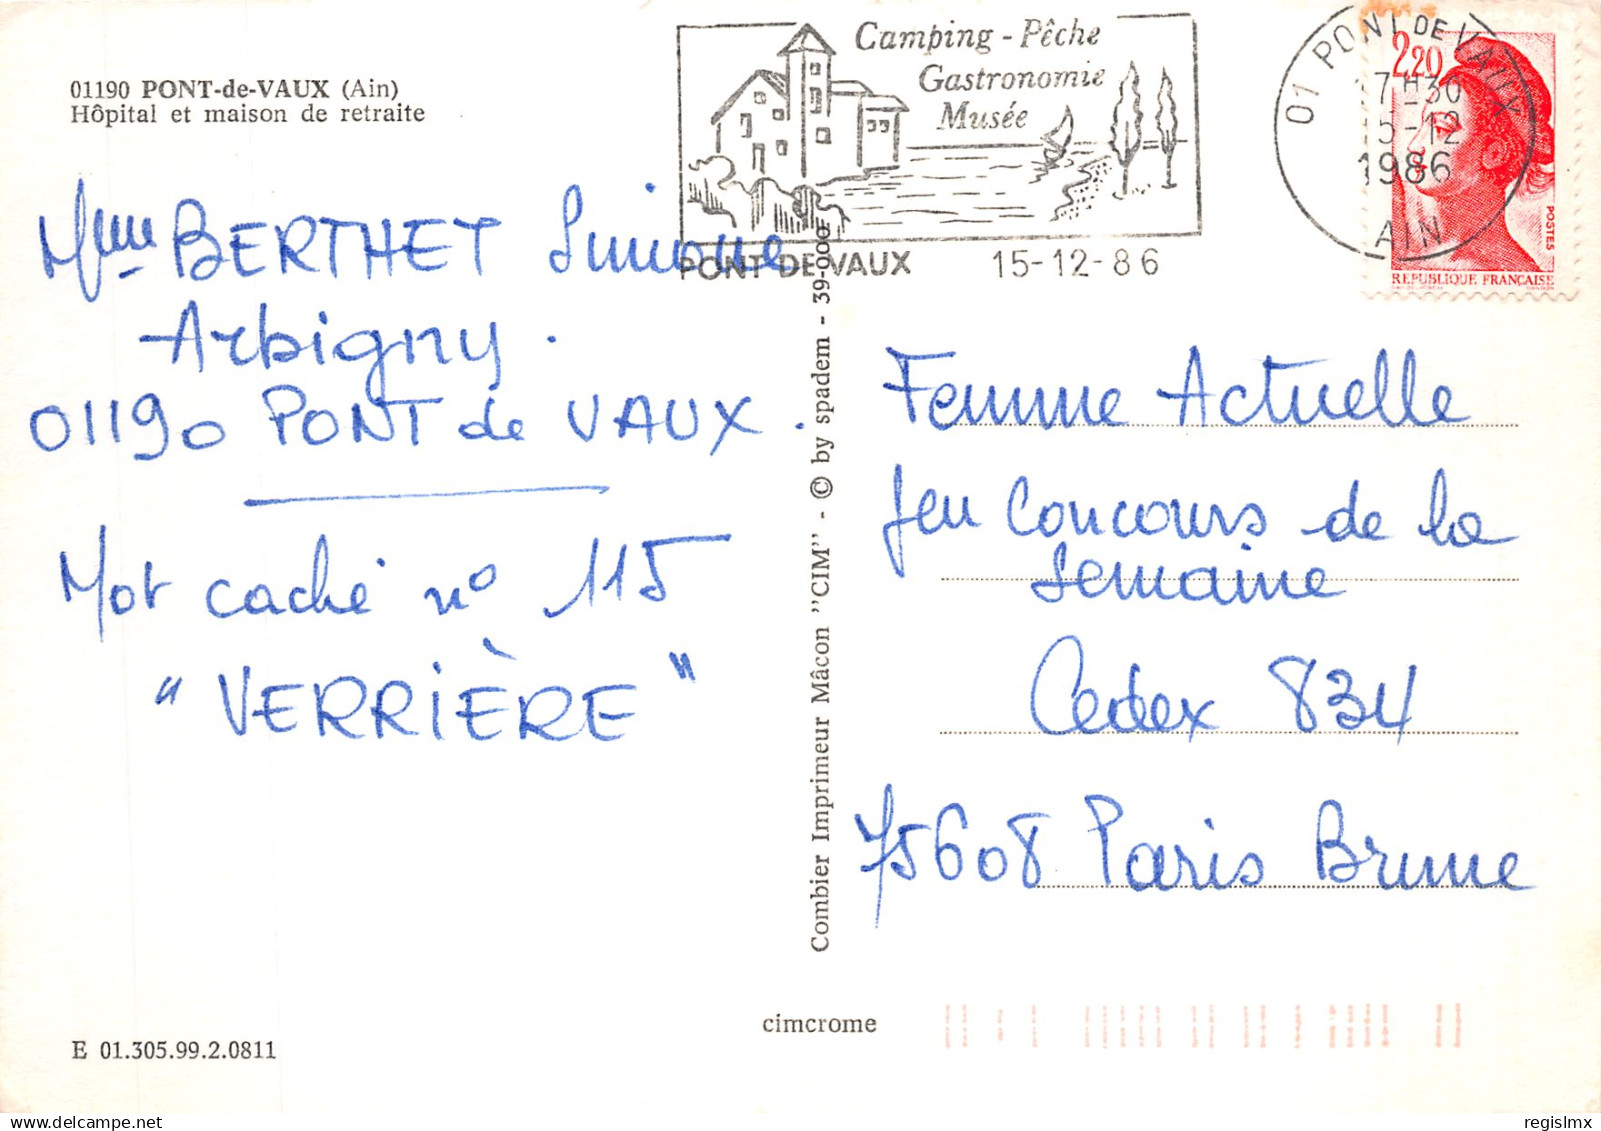 01190 PONT-de-VAUX (Ain)
Hôpital et maison de retraite
Camping - Pêche
Gastronomie
Musée
PONT-DE-VAUX 15-12-86
01 PONT DE VAUX
17H30
15-12
1986
AIN
2,20
POSTES
REPUBLIQUE FRANÇAISE
Mme BERTHET Simone
Arbigny.
01190 PONT de VAUX.
Mot caché n° 115
"VERRIÈRE"
Combier Imprimeur Mâcon "CIM" - © by spadem - 39-000
Femme Actuelle
Jeu Concours de la
Semaine
Cedex 834
75608 Paris Brune
cimcrome
E 01.305.99.2.0811
regislmx